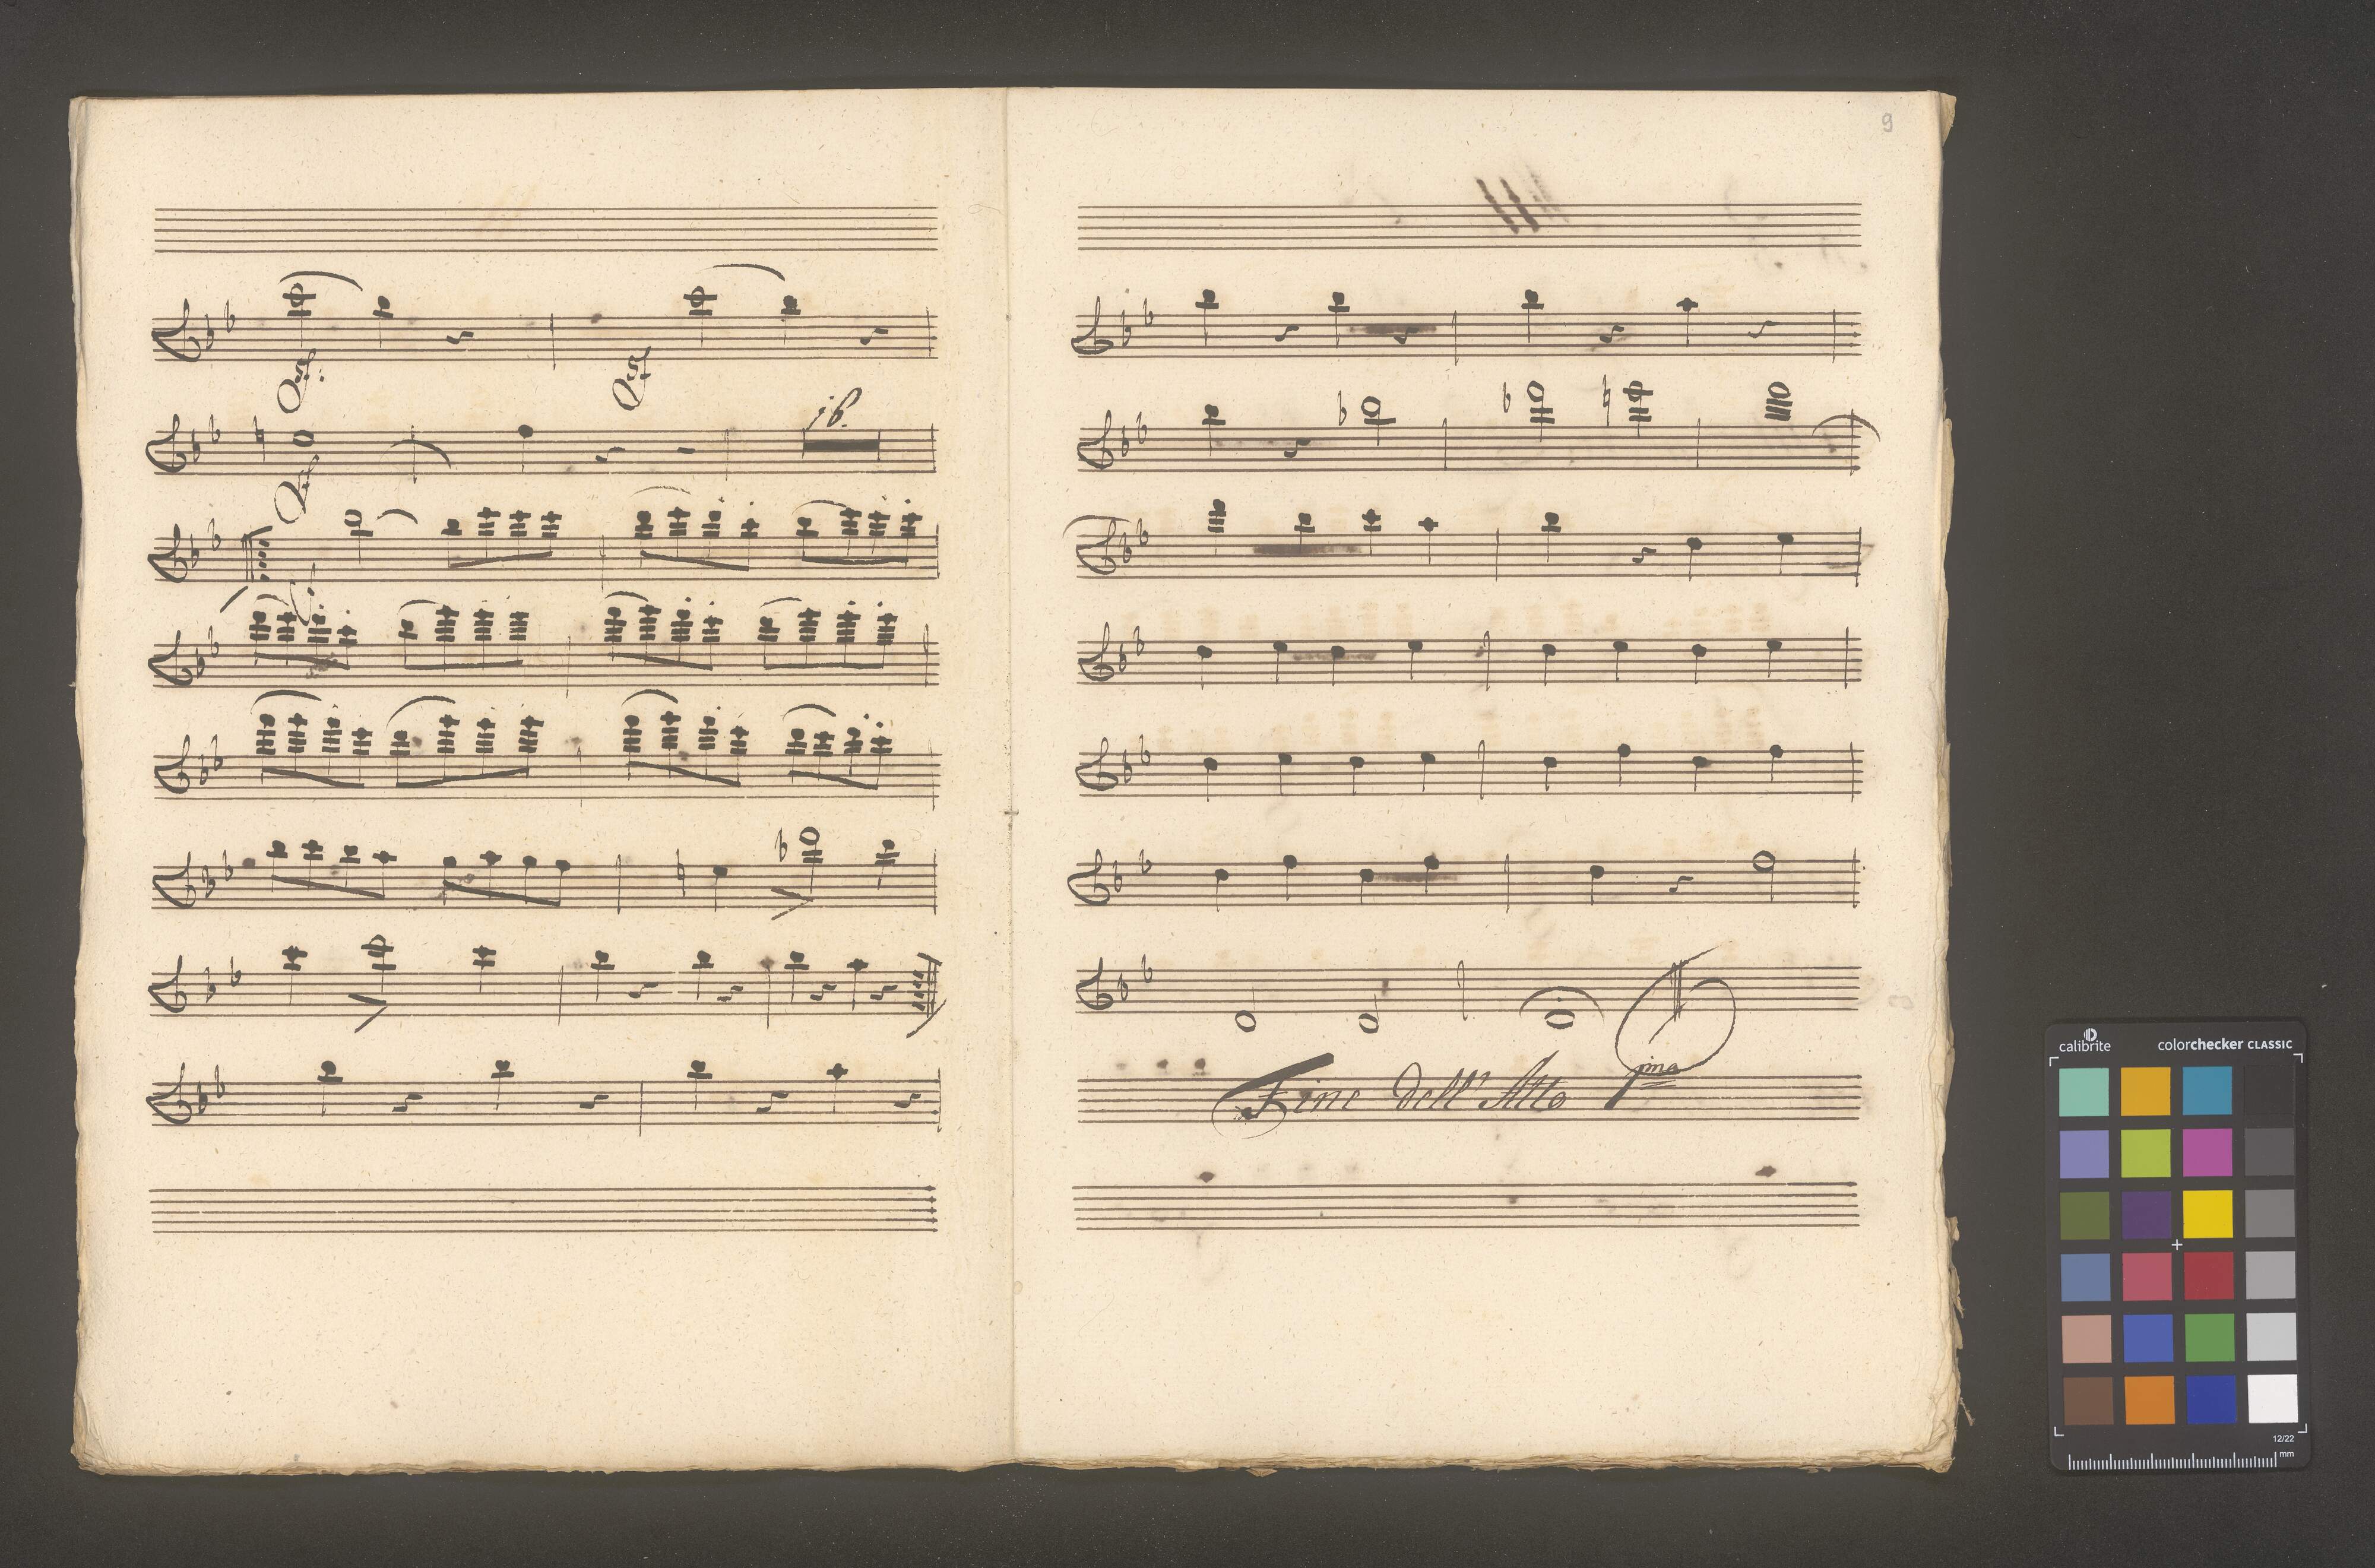 9
16.
Fine dell' Atto pmo
calibrite colorchecker CLASSIC
12/22
mm